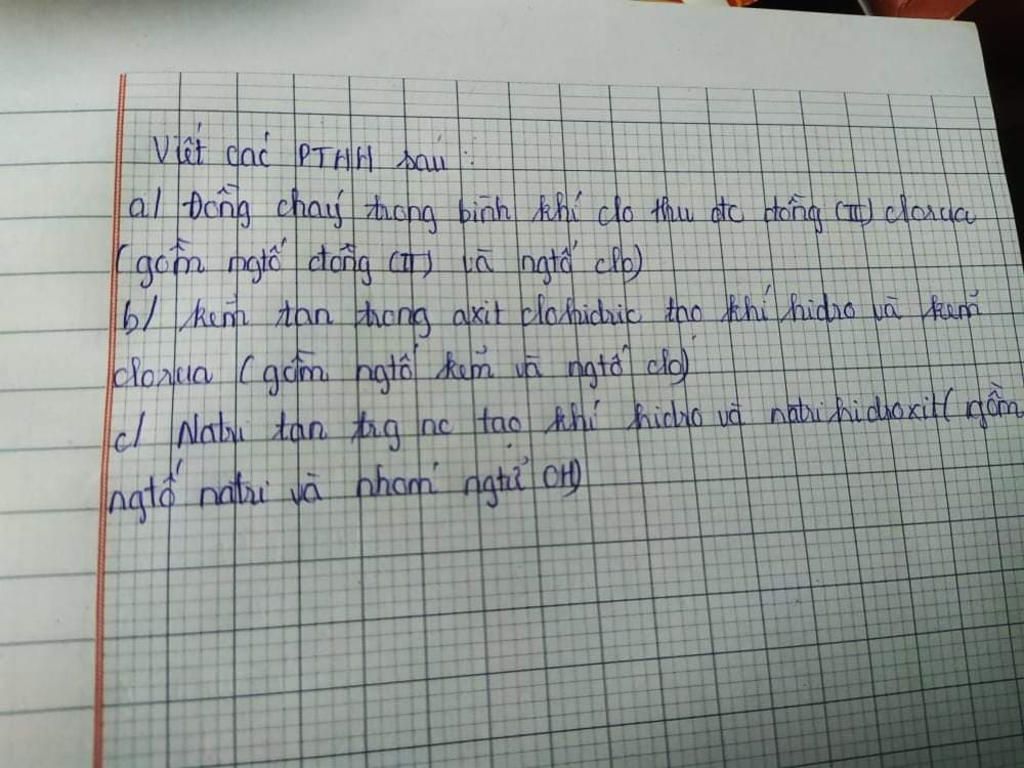 Viết các PTHH sau :
a/ Đồng cháy trong bình khí clo thu đc đồng (II) clorua
(gồm ngtố đồng (II) và ngtố clo)
b/ kẽm tan trong axit clohidric tạo khí hidro và kẽm
clorua (gồm ngtố kẽm và ngtố clo)
c/ Natri tan trg nc tạo khí hidro và natri hidroxit (gồm
ngtố natri và nhóm ngtử OH)